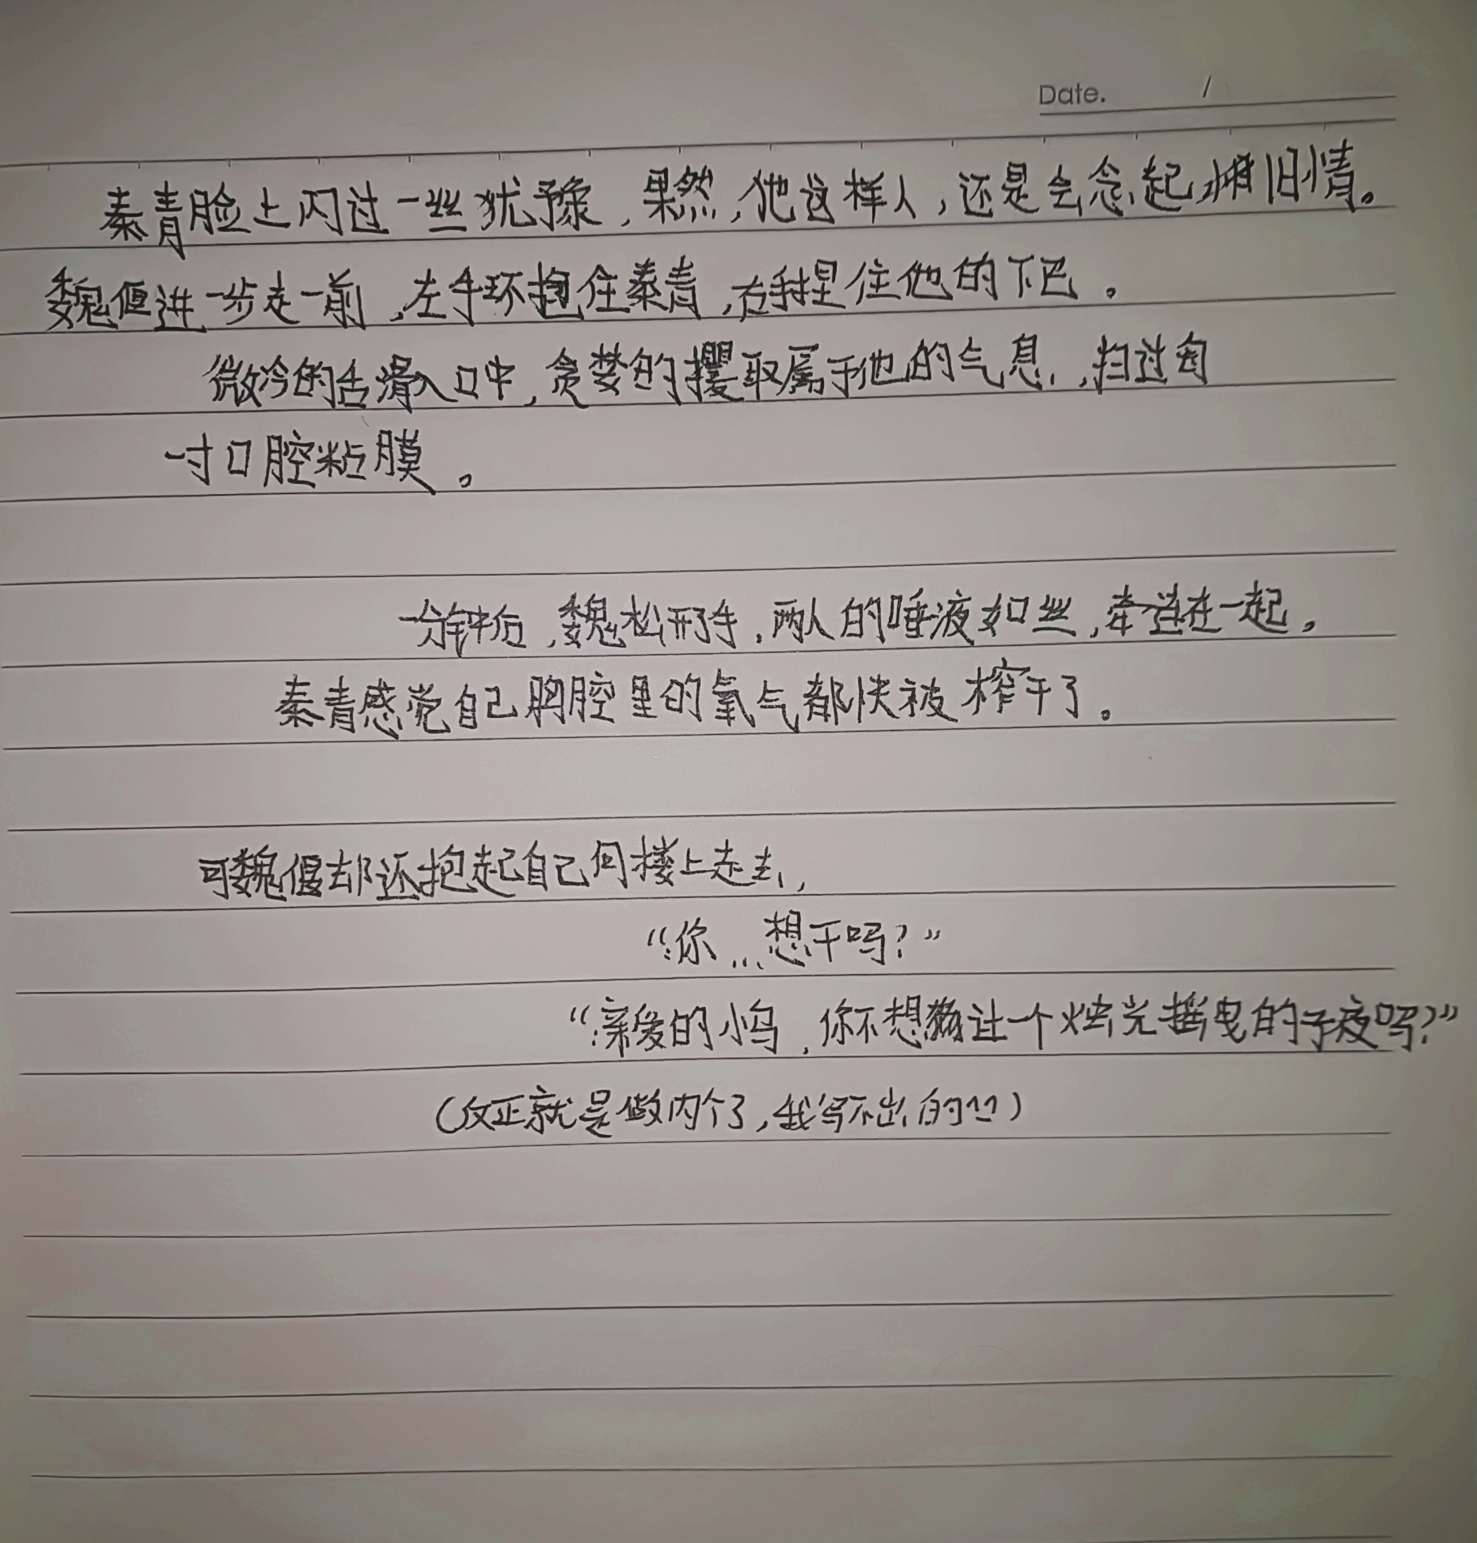 Date. /
秦青脸上闪过一丝犹豫，果然，他这样人，还是会念起旧情。
魏偃进一步走一前，左手环抱住秦青，右手捏住他的下巴。
微冷的舌滑入口中，贪婪的攫取属于他的气息，扫过每
一寸口腔粘膜。
一分钟后，魏松开手，两人的唾液如丝，牵连在一起，
秦青感觉自己胸腔里的氧气都快被榨干了。
可魏偃却还抱起自己向楼上走去，
“你...想干吗？”
“亲爱的小鸟，你不想让一个烛光摇曳的子夜吗？”
（反正就是做内个了，我写不出的）